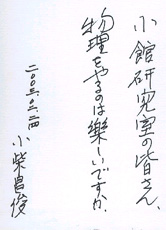 小館研究室の皆さん、
物理をやるのは樂しいですか。
二〇〇三.〇二.二四
小柴昌俊